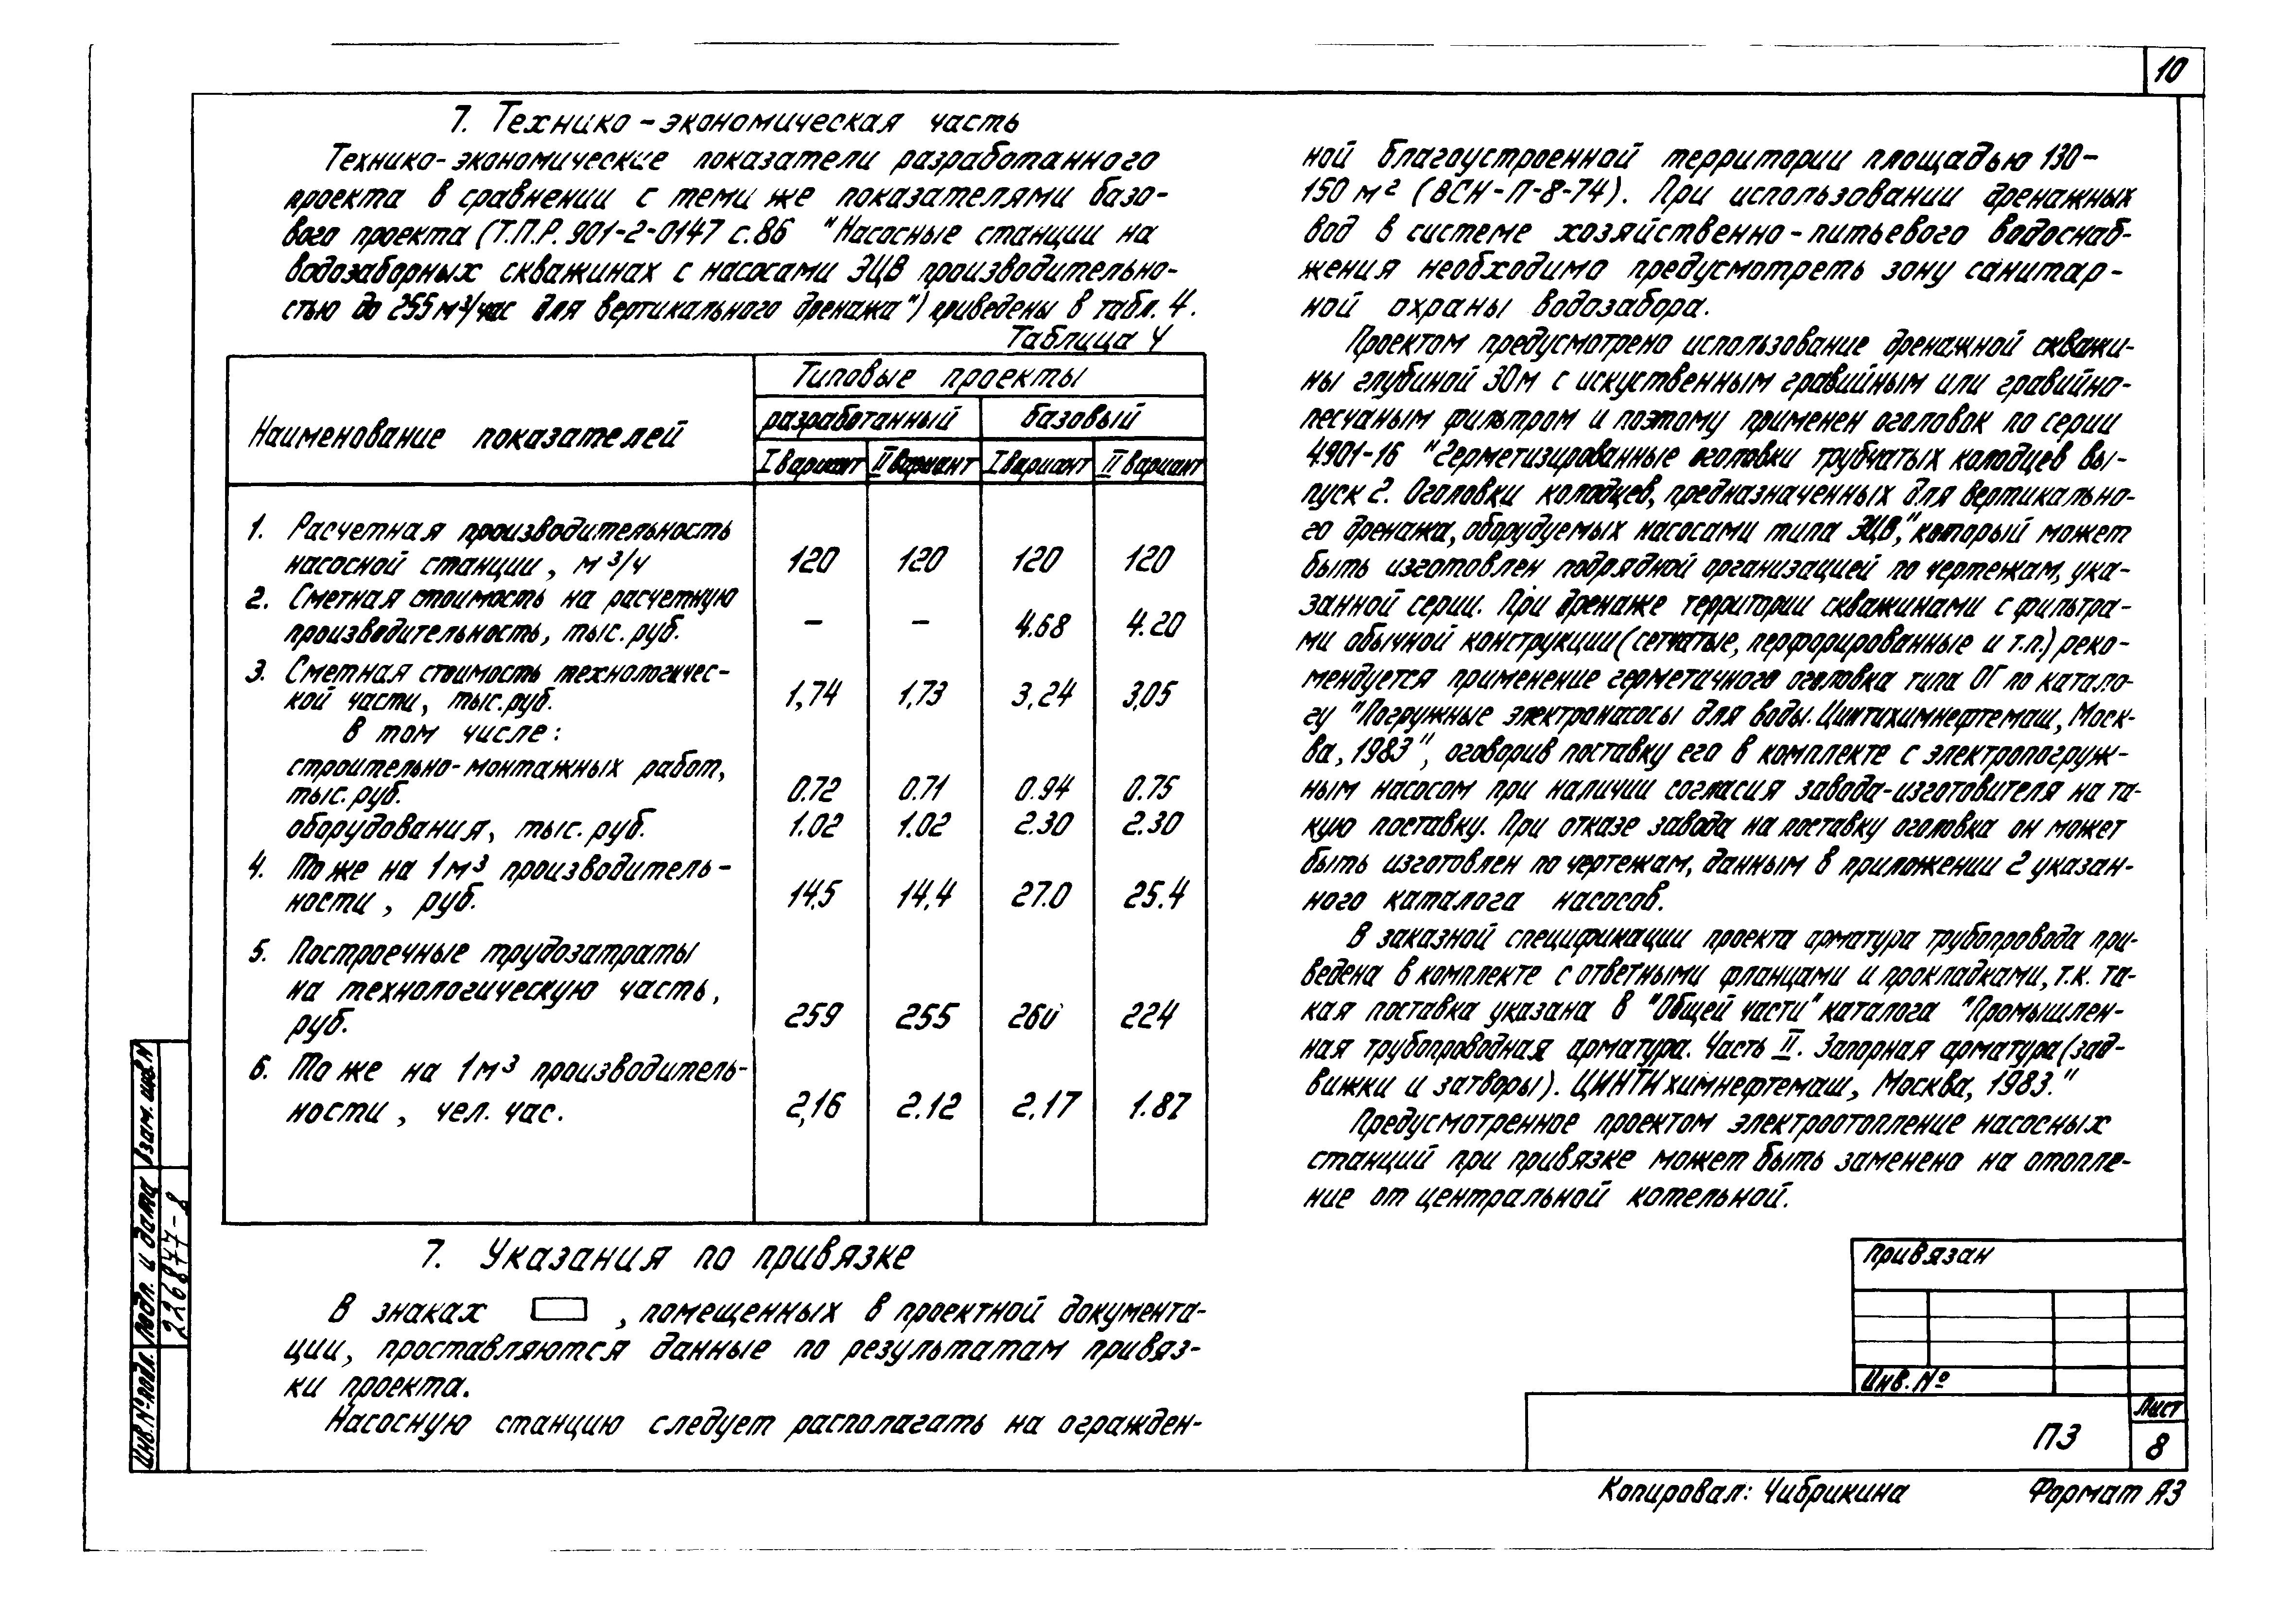 10
7. Технико-экономическая часть
Технико-экономические показатели разработанного
проекта в сравнении с теми же показателями базо-
вого проекта (Т.П.Р. 901-2-0147 с.86 "Насосные станции на
водозаборных скважинах с насосами ЭЦВ производительно-
стью до 255 м³/час для вертикального дренажа") приведены в табл. 4.
Таблица 4
Наименование показателей
Типовые проекты
разработанный базовый
I вариант II вариант I вариант II вариант
1. Расчетная производительность
насосной станции, м³/ч 120 120 120 120
2. Сметная стоимость на расчетную
производительность, тыс. руб. – – 4.68 4.20
3. Сметная стоимость технологичес-
кой части, тыс. руб. 1,74 1,73 3,24 3,05
в том числе:
строительно-монтажных работ,
тыс. руб. 0.72 0.71 0.94 0.75
оборудования, тыс. руб. 1.02 1.02 2.30 2.30
4. То же на 1 м³ производитель-
ности, руб. 14,5 14,4 27.0 25.4
5. Построечные трудозатраты
на технологическую часть,
руб. 259 255 260 224
6. То же на 1 м³ производитель-
ности, чел. час. 2,16 2.12 2,17 1.87
7. Указания по привязке
В знаках , помещенных в проектной документа-
ции, проставляются данные по результатам привяз-
ки проекта.
Насосную станцию следует располагать на огражден-
ной благоустроенной территории площадью 130-
150 м² (ВСН-П-8-74). При использовании дренажных
вод в системе хозяйственно-питьевого водоснаб-
жения необходимо предусмотреть зону санитар-
ной охраны водозабора.
Проектом предусмотрено использование дренажной скважи-
ны глубиной 30 м с искуственным гравийным или гравийно-
песчаным фильтром и поэтому применен оголовок по серии
4.901-16 "Герметизированные оголовки трубчатых колодцев вы-
пуск 2. Оголовки колодцев, предназначенных для вертикально-
го дренажа, оборудуемых насосами типа ЭЦВ", который может
быть изготовлен подрядной организацией по чертежам, ука-
занной серии. При дренаже территории скважинами с фильтра-
ми обычной конструкции (сетчатые, перфорированные и т.п.) реко-
мендуется применение герметичного оголовка типа ОГ по катало-
гу "Погружные электронасосы для воды. Цинтихимнефтемаш, Моск-
ва, 1983", оговорив поставку его в комплекте с электропогруж-
ным насосом при наличии согласия завода-изготовителя на та-
кую поставку. При отказе завода на поставку оголовка он может
быть изготовлен по чертежам, данным в приложении 2 указан-
ного каталога насосов.
В заказной спецификации проекта арматура трубопровода при-
ведена в комплекте с ответными фланцами и прокладками, т.к. та-
кая поставка указана в "Общей части" каталога "Промышлен-
ная трубопроводная арматура. Часть II. Запорная арматура (зад-
вижки и затворы). ЦИНТИхимнефтемаш, Москва, 1983."
Предусмотренное проектом электроотопление насосных
станций при привязке может быть заменено на отопле-
ние от центральной котельной.
Привязан
Инв. №
ПЗ
Лист
8
Копировал: Чибрикина Формат А3
Взам. инв. №
Подп. и дата
22687
Инв. № подл.